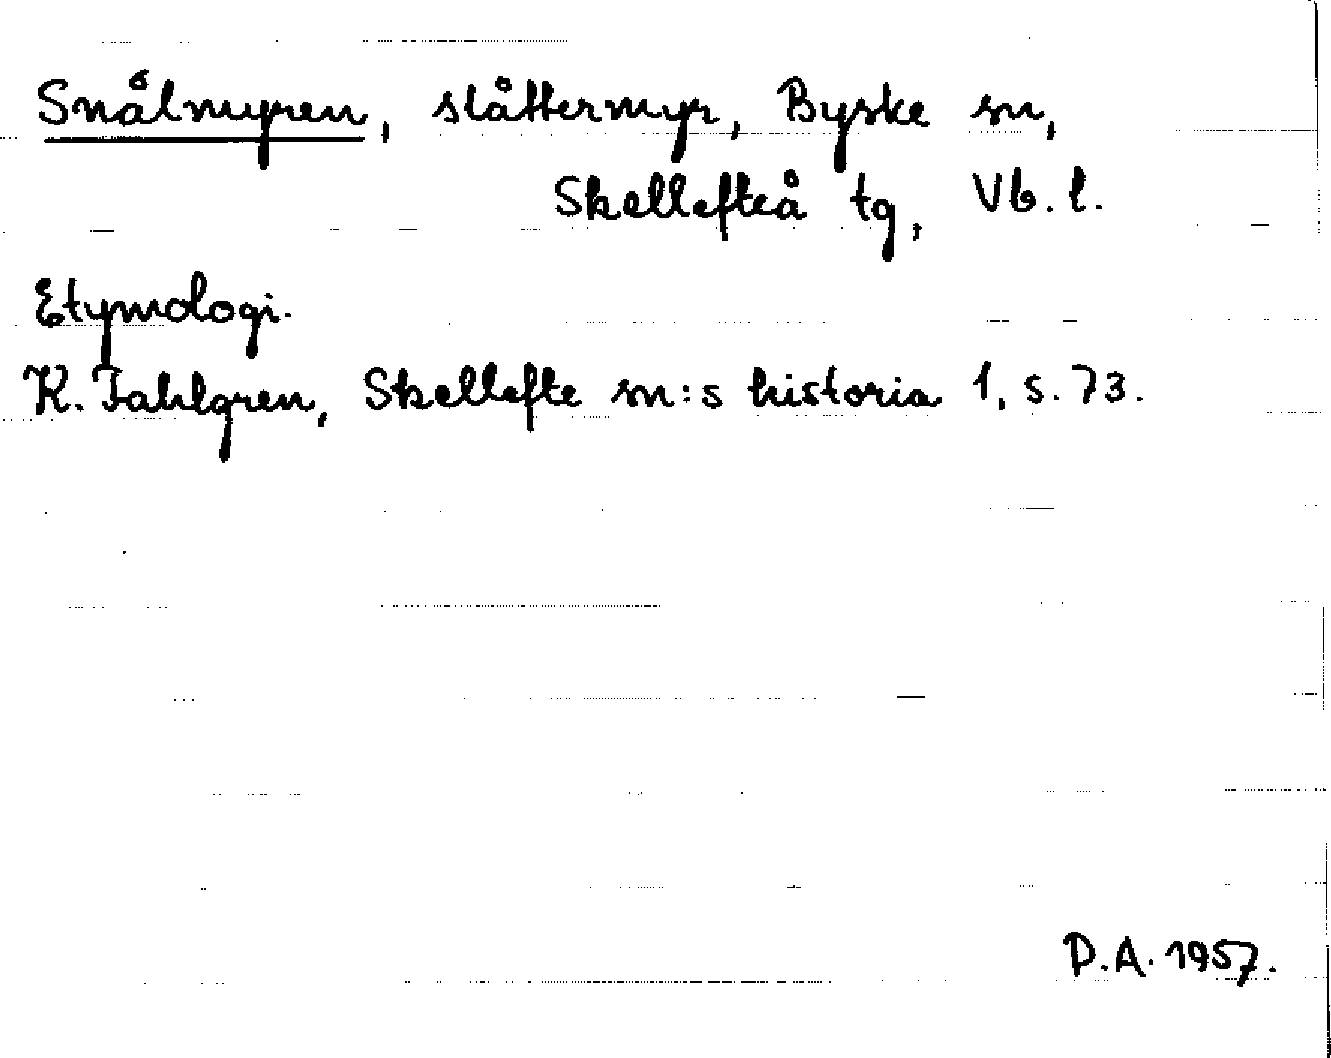 Snålmyren, slåttermyr, Byske sn,
Skellefteå tg, Vb. l.
Etymologi.
K. Fahlgren, Skellefte sn:s historia 1, s. 73.
D.A. 1957.